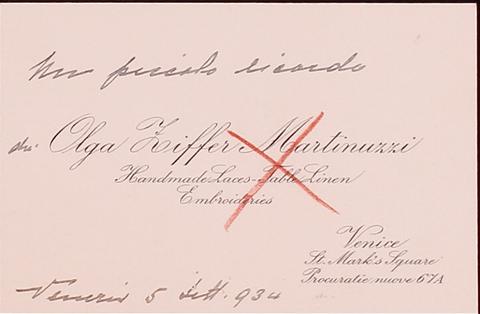 Un piccolo ricordo
da: Olga Ziffer Martinuzzi
Handmade Laces-Table Linen
Embroideries
Venice
St. Mark's Square
Procuratie nuove 67A
Venezia 5 Sett. 934